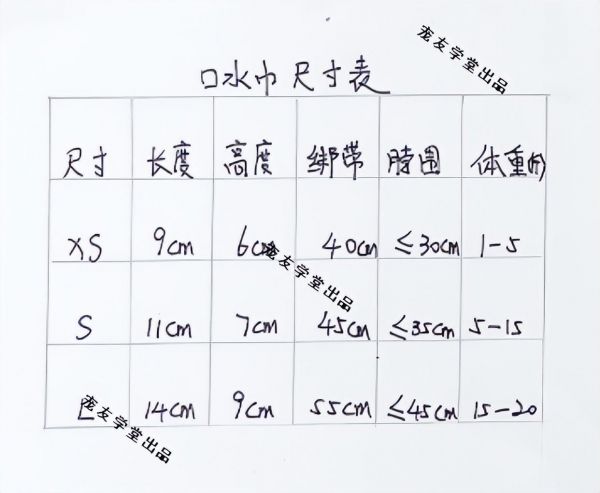 宠友学堂出品
口水巾尺寸表
尺寸 长度 高度 绑带 脖围 体重(斤)
XS 9cm 6cm 40cm ≤30cm 1-5
宠友学堂出品
S 11cm 7cm 45cm ≤35cm 5-15
L 14cm 9cm 55cm ≤45cm 15-20
宠友学堂出品